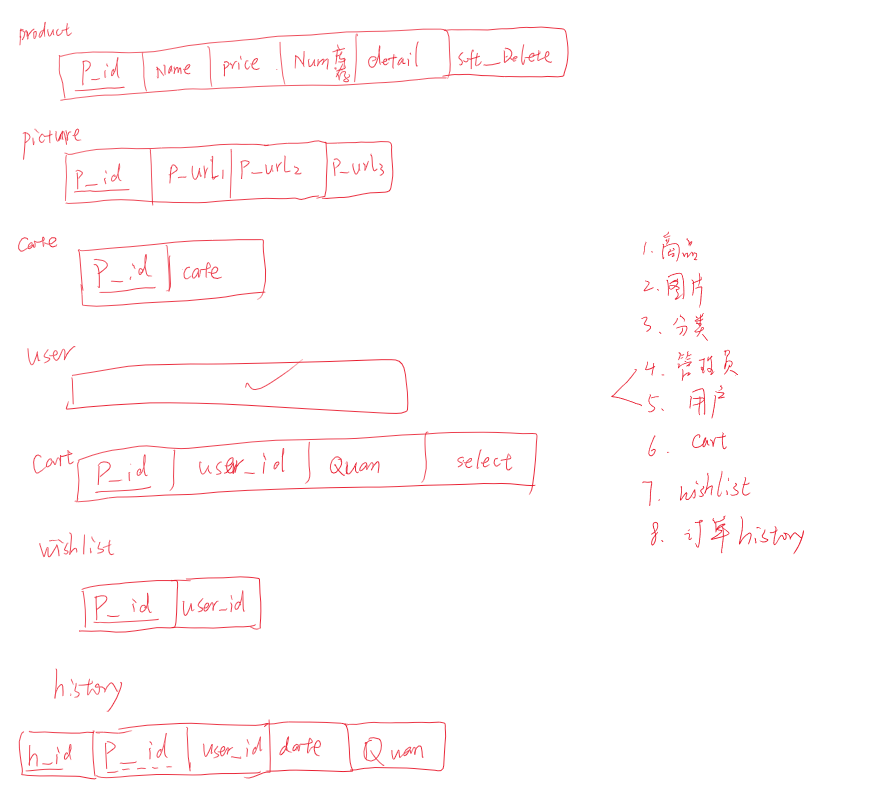 product
P_id Name price Num库存 detail soft_Delete
picture
P_id P_url1 P_url2 P_url3
Cate
P_id cate
user
Cart
P_id user_id Quan select
wishlist
P_id user_id
history
h_id P_id user_id date Quan
1. 商品
2. 图片
3. 分类
4. 管理员
5. 用户
6. Cart
7. wishlist
8. 订单history